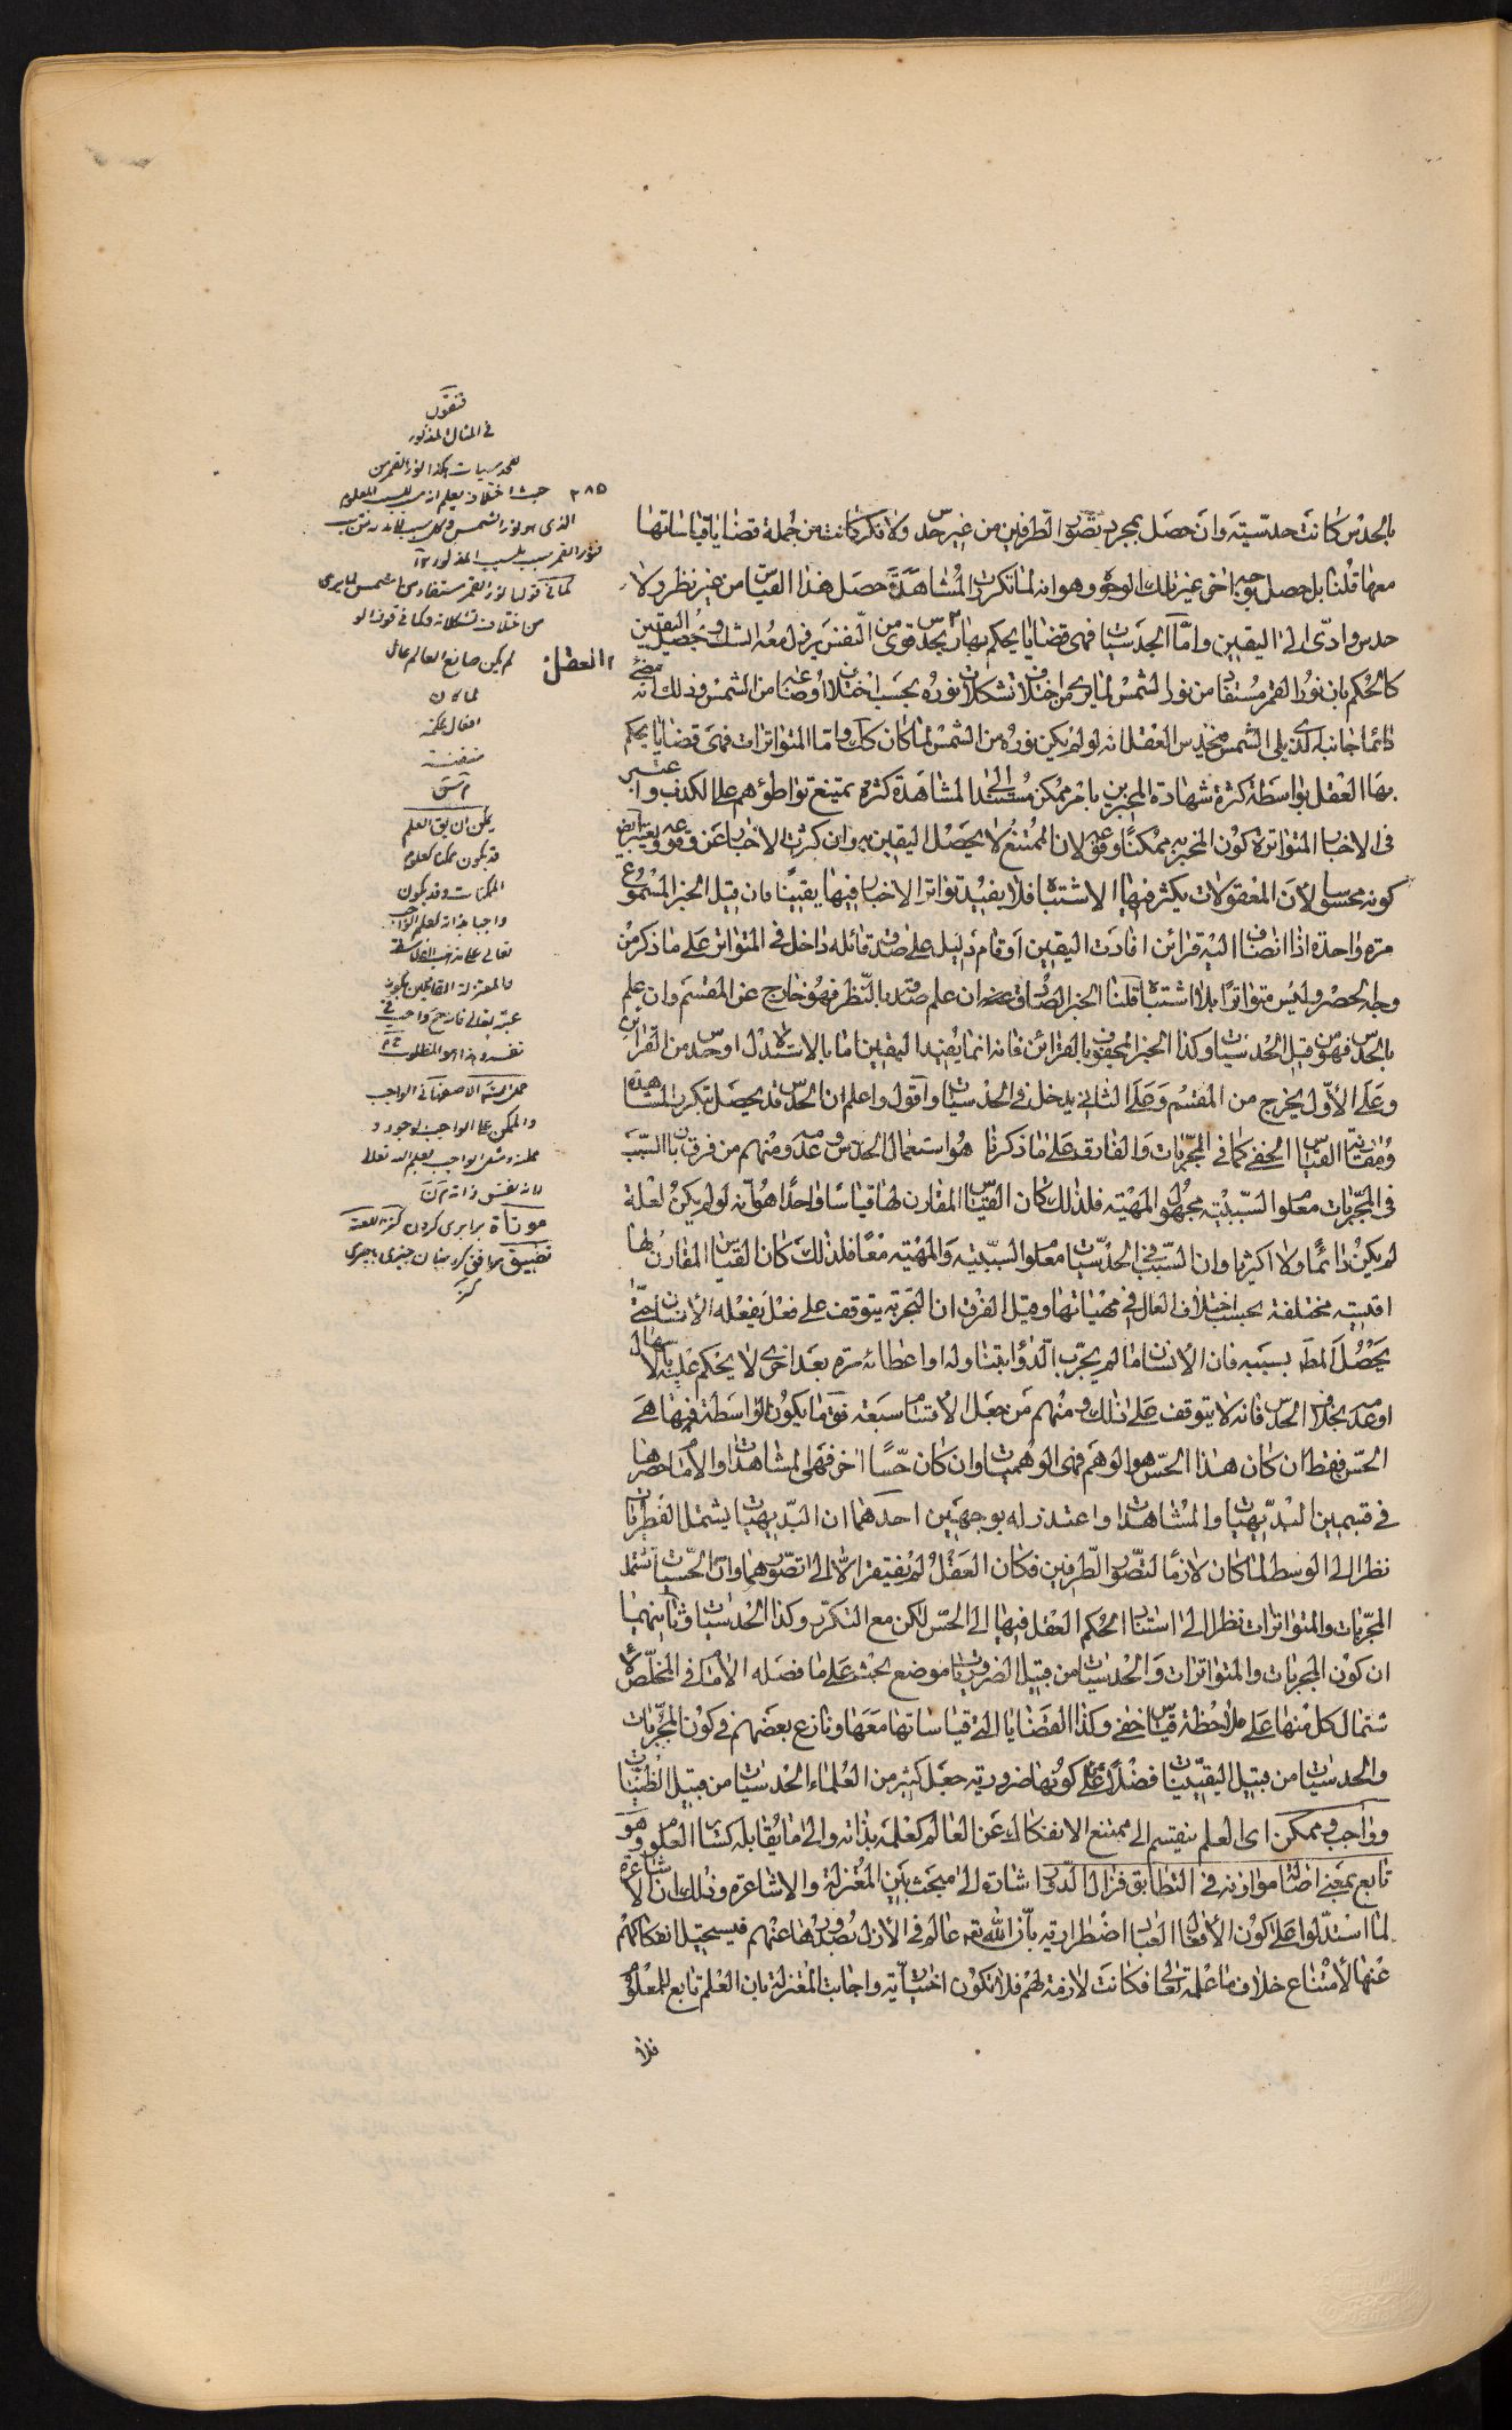 بالحدس كانت حدسية وان حصل بمجرد تصور الطرفين من غير حدس ولا فكر كانت من جملة قضايا قياساتها
معها قلنا بل حصل بوجه اخر غير تلك الوجوه وهو انه لما تكرر المشاهدة حصل هذا القياس من غير نظر ولا
حدس وادى الى اليقين واما الحدسيات فهى قضايا يحكم بها بحدس قوى من النفس يزول معه الشك ويحصل اليقين
كالحكم بان نور القمر مستفاد من نور الشمس لما يرى من اختلاف تشكلات نوره بحسب اختلاف اوضاعه من الشمس وذلك انه مضئ
دائما جانبه الذى يلى الشمس فيحدس العقل انه لو لم يكن نوره من الشمس لما كان كك واما المتواترات فهى قضايا يحكم
بها العقل بواسطة كثرة شهادة المخبرين بامر ممكن مستند الى المشاهدة كثرة يمتنع تواطؤهم على الكذب واعتبر
فى الاخبار المتواترة كون المخبر به ممكنا وقوعه لان الممتنع لا يحصل اليقين به وان كثرت الاخبار عن وقوعه ويعتبر ايض
كونه محسوسا لان المعقولات يكثر فيها الاشتباه فلا يفيد تواتر الاخبار فيها يقينا فان قيل الخبر المسموع
مرة واحدة اذا انضاف اليه قرائن افادت اليقين او قام دليل على صدق قائله داخل فى المتواتر على ما ذكر من
وجه الحصر وليس متواترا بلا اشتباه قلنا الخبر الصادق ان علم صدقه بالنظر فهو خارج عن المقسم وان علم
بالحدس فهو من قبيل الحدسيات وكذا الخبر المحفوف بالقرائن فانه انما يفيد اليقين اما بالاستدلال او حدس من القرائن
وعلى الاول يخرج من المقسم وعلى الثانى يدخل فى الحدسيات واقول واعلم ان الحدس قد يحصل بتكرر المشاهدة
ومقارنة القياس الخفى كما فى المجربات والفارق على ما ذكرنا هو استعمال الحدس وعدمه ومنهم من فرق بان السبب
فى المجربات معلوم السببية مجهول المهية فلذلك كان القياس المقارن لها قياسا واحدا هو انه لو لم يكن لعلة
لم يكن دائما ولا اكثريا وان السبب فى الحدسيات معلوم السببية والمهية معا فلذلك كان القياس المقارن لها
اقيسة مختلفة بحسب اختلاف العلل فى مهياتها وقيل الفرق ان التجربة يتوقف على فعل يفعله الانسان حتى
يحصل المط بسببه فان الانسان ما لم يجرب الدواء بتناوله او اعطائه مرة بعد اخرى لا يحكم عليه بالاسهال
او عدمه بخلاف الحدس فانه لا يتوقف على ذلك ومنهم من جعل الاقسام سبعة فق ما يكون الواسطة فيها هى
الحس فقط ان كان هذا الحس هو الوهم فهى الوهميات وان كان حسا اخر فهى المشاهدات والامام حصرها
فى قسمين البديهيات والمشاهدات واعتذر له بوجهين احدهما ان البديهيات يشتمل الفطريات
نظرا الى ان الوسط لما كان لازما لتصور الطرفين فكان العقل لم يفتقر الا الى تصورهما وان الحسيات تشمل
المجربات والمتواترات نظرا الى استناد الحكم العقل فيها الى الحس لكن مع التكرر وكذا الحدسيات وثانيهما
ان كون المجربات والمتواترات والحدسيات من قبيل الضروريات موضع بحث على ما فصله الامام فى الملخص لا
شتمال كل منها على ملاحظة قياس خفى وكذا القضايا التى قياساتها معها ونازع بعضهم فى كون المجربات
والحدسيات من قبيل اليقينيات فضلا عن كونها ضرورية جعل كثير من العلماء الحدسيات من قبيل الظنيات
وواجب وممكن اى العلم ينقسم الى ممتنع الانفكاك عن العالم كعلمه بذاته والى ما يقابله كسائر العلوم وهو
تابع بمعنى اصالة موازنه فى التطابق فزال الدور اشارة الى مبحث بين المعتزلة والاشاعرة وذلك ان الاشاعرة
لما استدلوا على كون الافعال العباد اضطرارية بان الله تع عالم فى الازل بصدورها عنهم فيستحيل انفكاكهم
عنها لامتناع خلاف ما علمه تعالى فكانت لازمة لهم فلا تكون اختيارية واجابت المعتزلة بان العلم تابع للمعلوم
فلا
العقل
٢٨٥
فنقول
فى المثال المذكور
للحدسيات هكذا نور القمر من
حيث اختلافه يعلم انه مسبب للسبب المعلوم
نور القمر مسبب للسبب المذكور ١٢
كما فى قولنا نور القمر مستفاد من الشمس لما يرى
من اختلاف تشكلاته وكما فى قولنا لو
لم يكن صانع العالم عالما
لما كان
افعال محكمة
متقنة
يمكن ان يق العلم
قد يكون ممكنا كعلوم
الممكنات وقد يكون
واجبا بذاته كعلم الواجب
تعالى
والمعتزلة القائلين بكون
موازاة برابرى كردن كنز اللغة
تطبيق موافق كردن ميان چيزى با چيزى
كنز